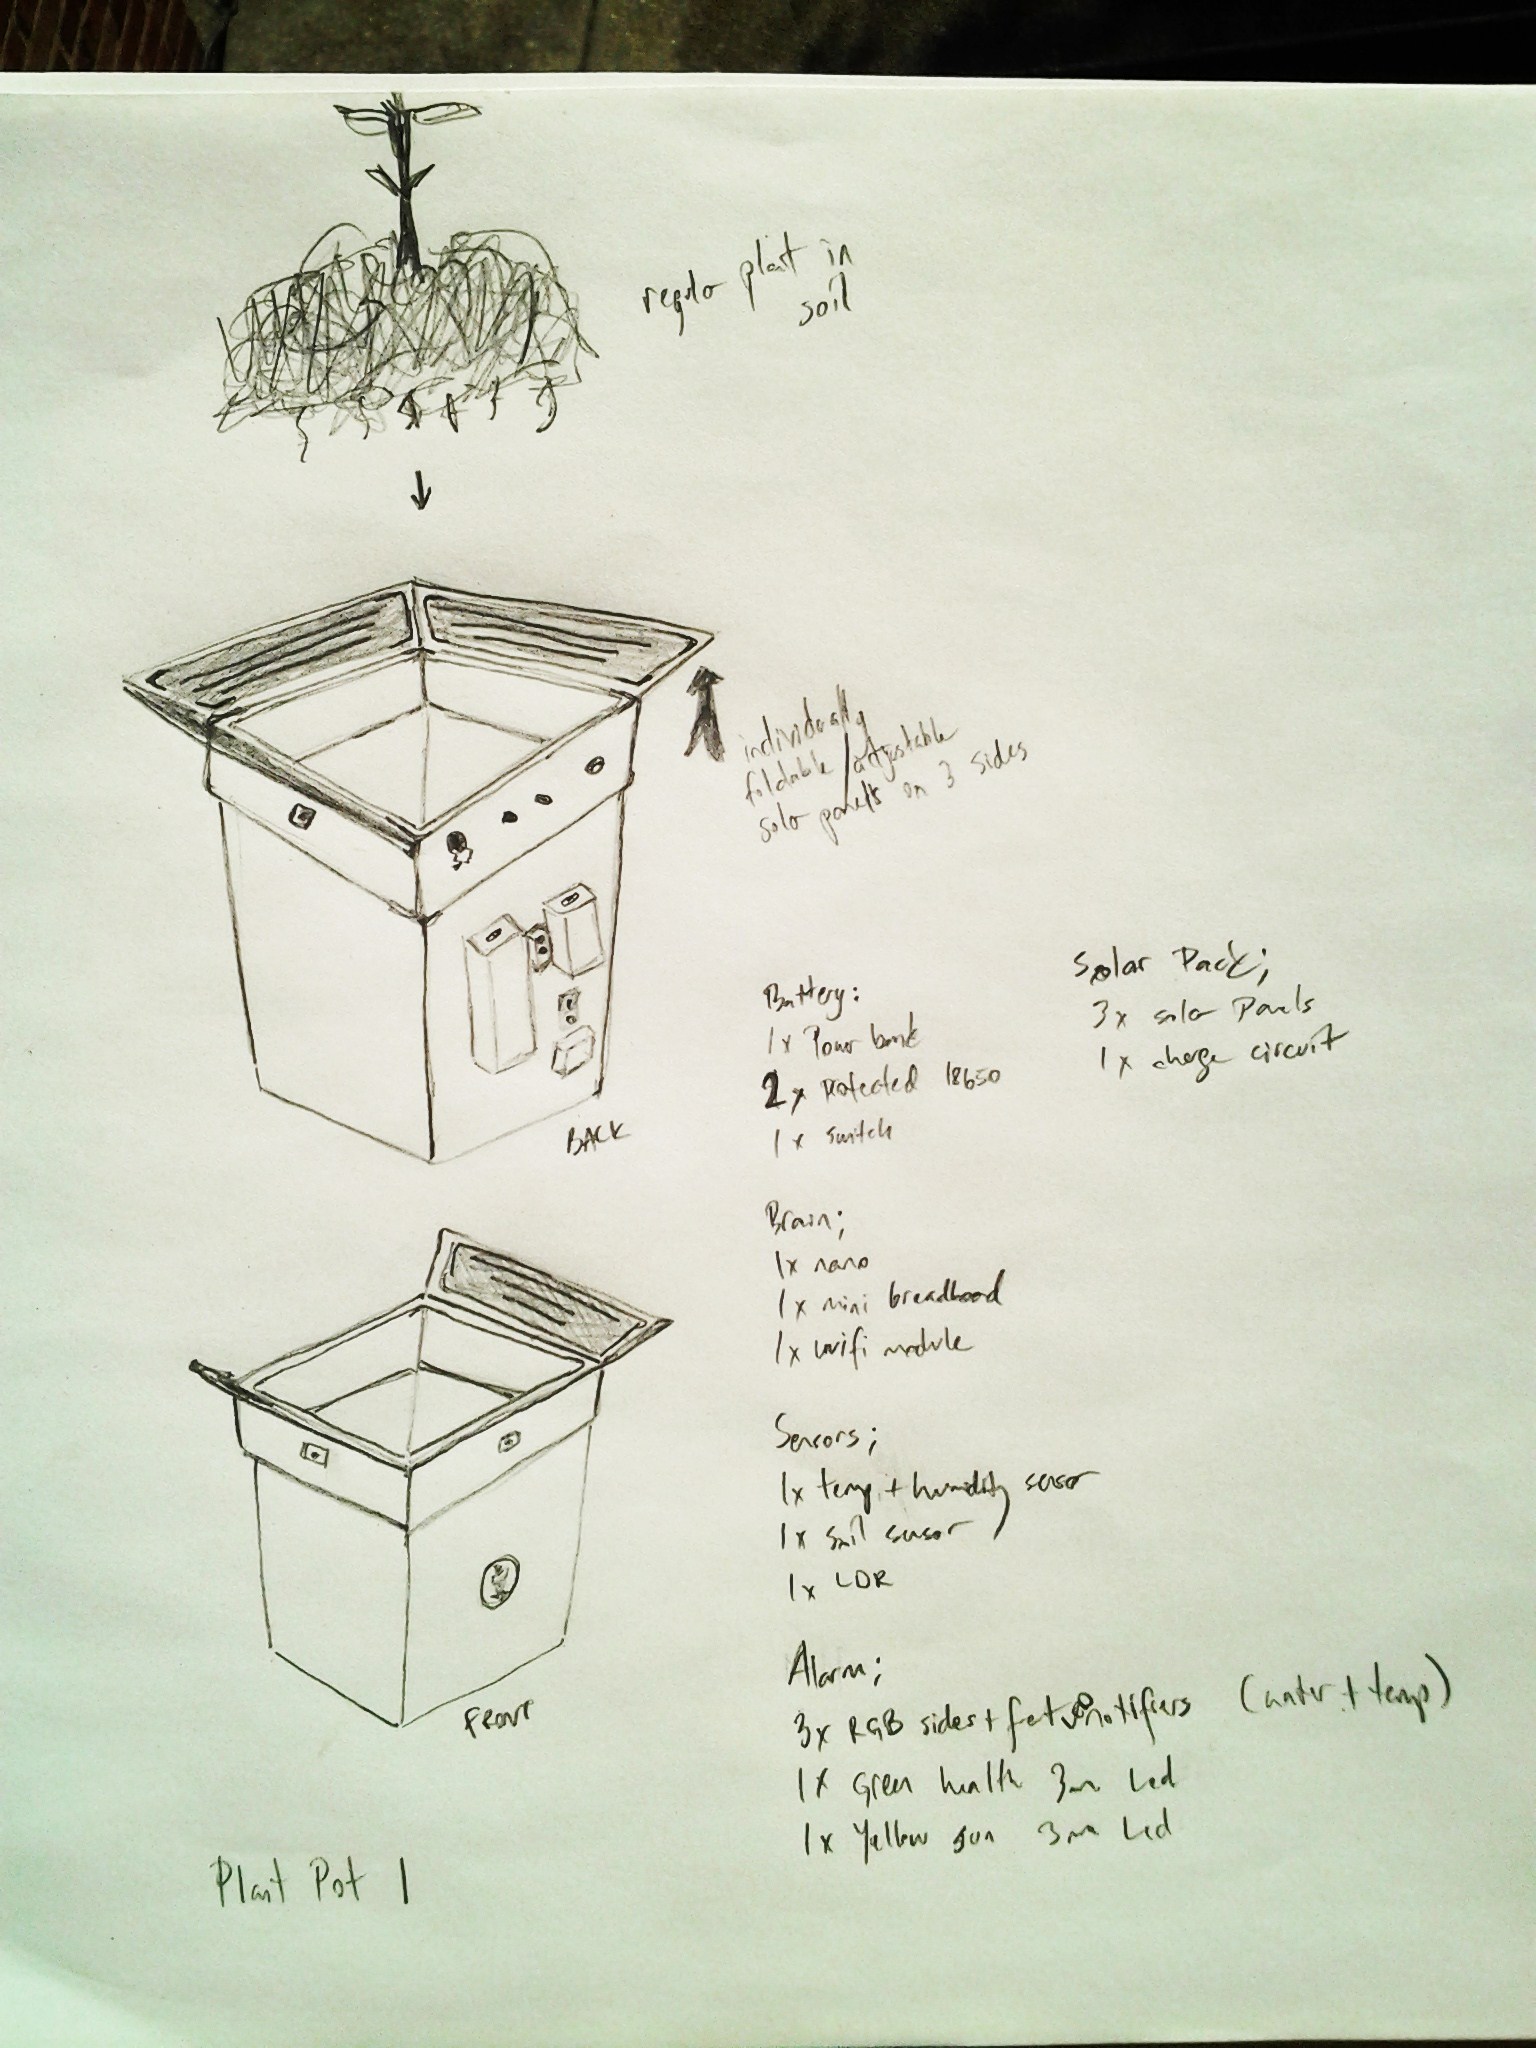 regular plant in
soil
individually
foldable/adjustable
solar panels on 3 sides
BACK
Battery:
1x Power bank
2x Protected 18650
1x switch
Solar Pack;
3x solar Panels
1x charge circuit
Brain;
1x nano
1x mini breadboard
1x wifi module
Sensors;
1x temp + humidity sensor
1x soil sensor
1x LDR
Alarm;
3x RGB sides + notifiers (water + temp)
1x Green health 3mm Led
1x Yellow sun 3mm Led
FRONT
Plant Pot 1